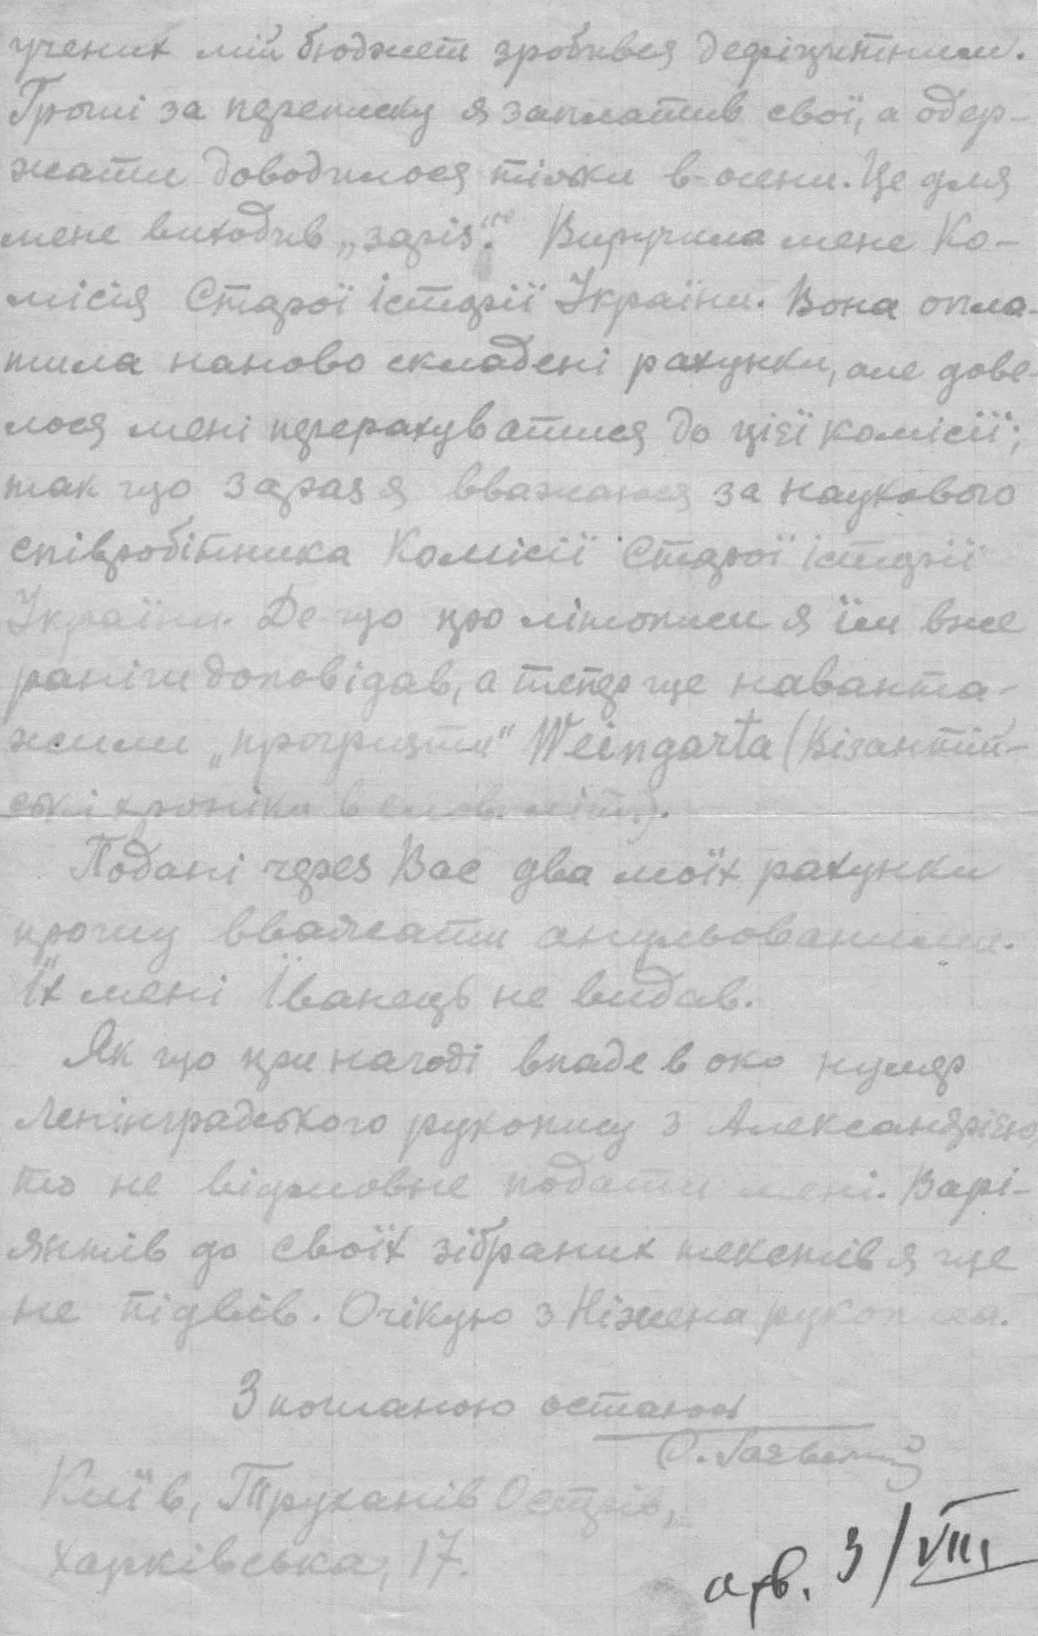 учених мій бюджет зробився дефіцитним.
Гроші за переписку я заплатив свої, а одер-
жати доводилося тільки в-осени. Це для
мене виходив „заріз". Виручила мене Ко-
місія Старої історії України. Вона опла-
тила наново складені рахунки, але дове-
лося мені перерахуватися до цієї комісії;
так що зараз я вважаюся за наукового
співробітника Комісії Старої історії
України. Де-що про літописи я їм вже
раніш доповідав, а тепер ще наванта-
жили „прогризти" Weingart'a (Візантій-
ські хроніки в слов. літ.).
Подані через Вас два моїх рахунки
прошу вважати анульованими.
Їх мені Іванець не видав.
Як що при нагоді впаде в око нумер
Ленінградського рукопису з Александрією,
то не відмовте подати мені. Варі-
янтів до своїх зібраних текстів я ще
не підвів. Очікую з Ніжена рукописа.
З пошаною остаюсь
Київ, Труханів Острів,
Харківська, 17.
3/VIII